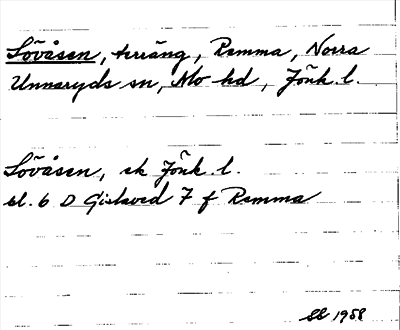 Lövåsen, terräng, Ramma, Norra
Unnaryds sn, Mo hd, Jönk. l.
Lövåsen, ek Jönk. l.
bl. 6 D Gislaved 7 f Ramma
1958